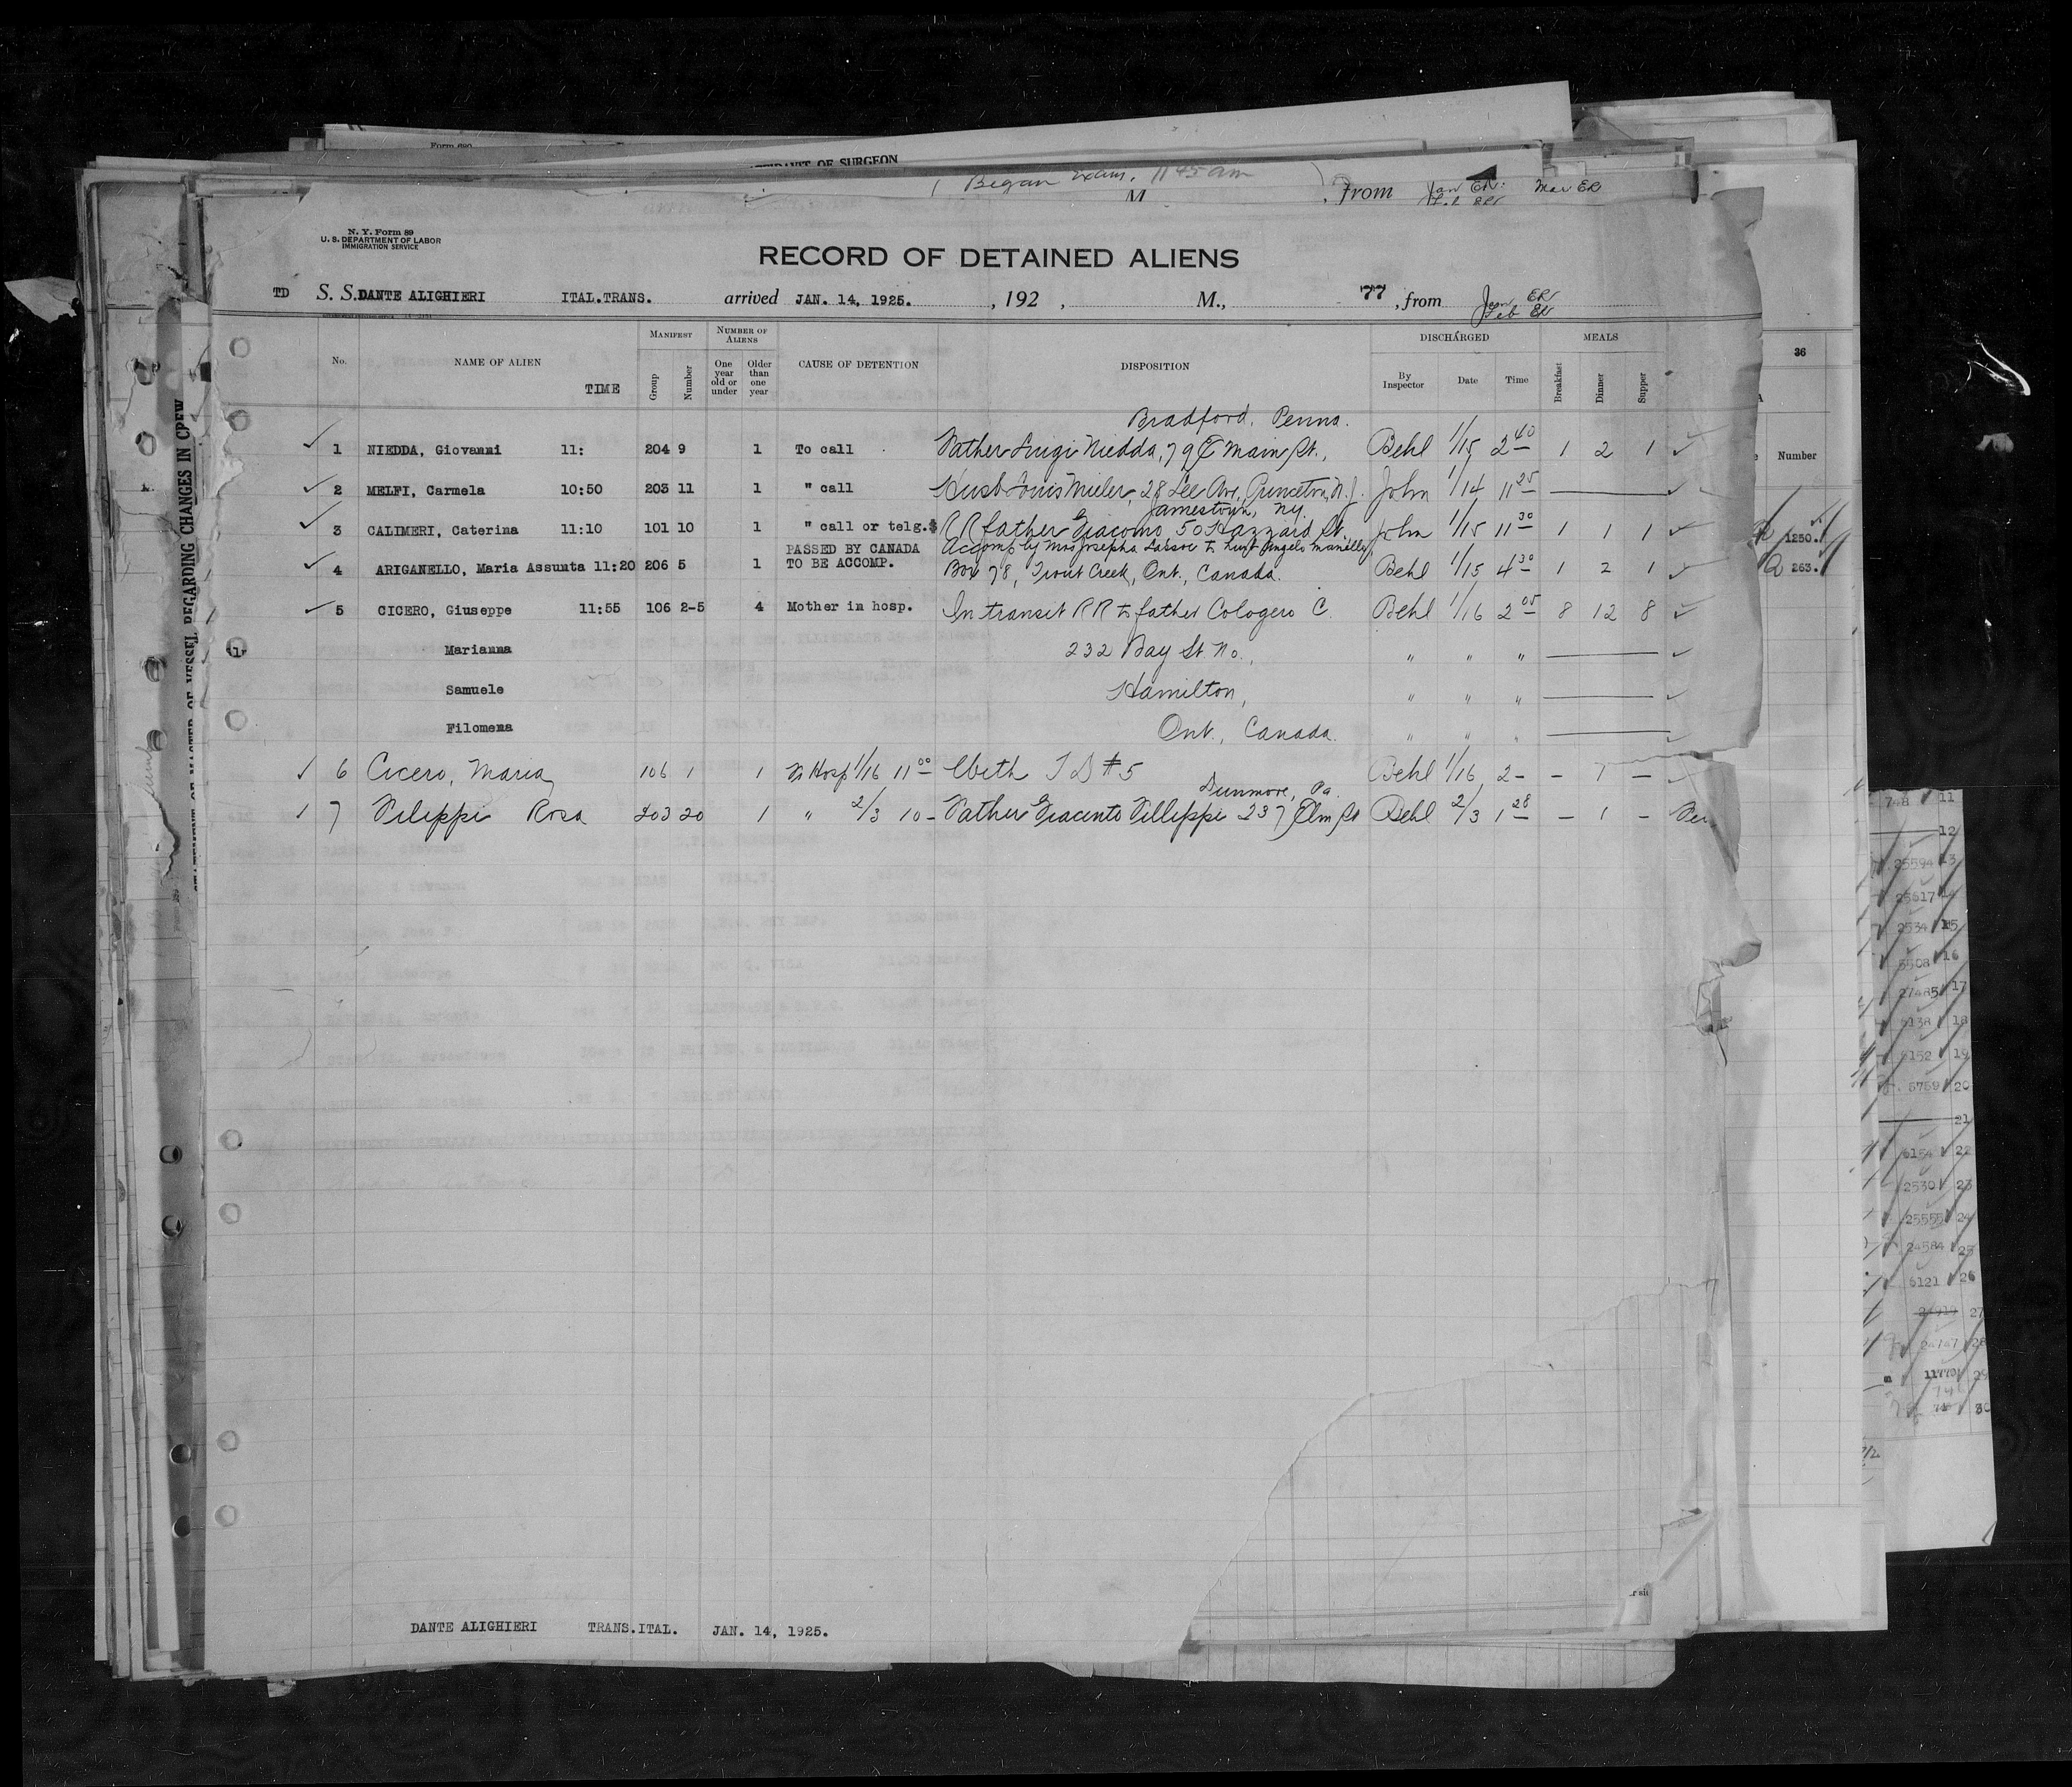 Form 680
AFFIDAVIT OF SURGEON
Began Exam. 11 45 am
M , from Jan ER. Mar ER
N. Y. Form 89
U. S. DEPARTMENT OF LABOR
IMMIGRATION SERVICE
RECORD OF DETAINED ALIENS
TD S. S. DANTE ALIGHIERI ITAL.TRANS. arrived JAN. 14, 1925. , 192 , M., 77 , from Jan ER
Feb ER
No. NAME OF ALIEN TIME MANIFEST Group Number NUMBER OF ALIENS One year old or under Older than one year CAUSE OF DETENTION DISPOSITION DISCHARGED By Inspector Date Time MEALS Breakfast Dinner Supper
Bradford, Penna.
1 NIEDDA, Giovanni 11: 204 9 1 To call Father Luigi Niedda, 79 E Main St., Behl 1/15 2 40 1 2 1
2 MELFI, Carmela 10:50 203 11 1 " call Husb Louis Mieler, 28 Lee Ave, Princeton, N. J. John 1/14 11 25
Jamestown, NY.
3 CALIMERI, Caterina 11:10 101 10 1 " call or telg.$ RR father Giacomo 50 Hazzard St., John 1/15 11 30 1 1 1
PASSED BY CANADA Accomp by Mrs Josepha to husb Angelo
4 ARIGANELLO, Maria Assunta 11:20 206 5 1 TO BE ACCOMP. Box 78, Trout Creek, Ont., Canada. Behl 1/15 4 30 1 2 1
5 CICERO, Giuseppe 11:55 106 2-5 4 Mother in hosp. In transit RR to father Cologero C. Behl 1/16 2 05 8 12 8
Marianna 232 Bay St. No., " " "
Samuele Hamilton, " " "
Filomena Ont., Canada. " " "
6 Cicero, Maria 106 1 1 In Hosp 1/16 11 00 With T D # 5 Behl 1/16 2 - - 1 -
Dunmore, Pa.
7 Filippi Rosa 203 20 1 " 2/3 10 - Father Giacinto Fillippi 237 Elm St Behl 2/3 1 28 - 1 -
DANTE ALIGHIERI TRANS.ITAL. JAN. 14, 1925.
STATEMENT OF MASTER OF VESSEL REGARDING CHANGES IN CREW
36
Number
1250.
263.
748 11
12
25594 13
25617 14
2534 15
5508 16
27485 17
6138 18
6152 19
5759 20
21
6154 22
2530 23
25555 24
24584 25
6121 26
27
24747 28
11770 29
30